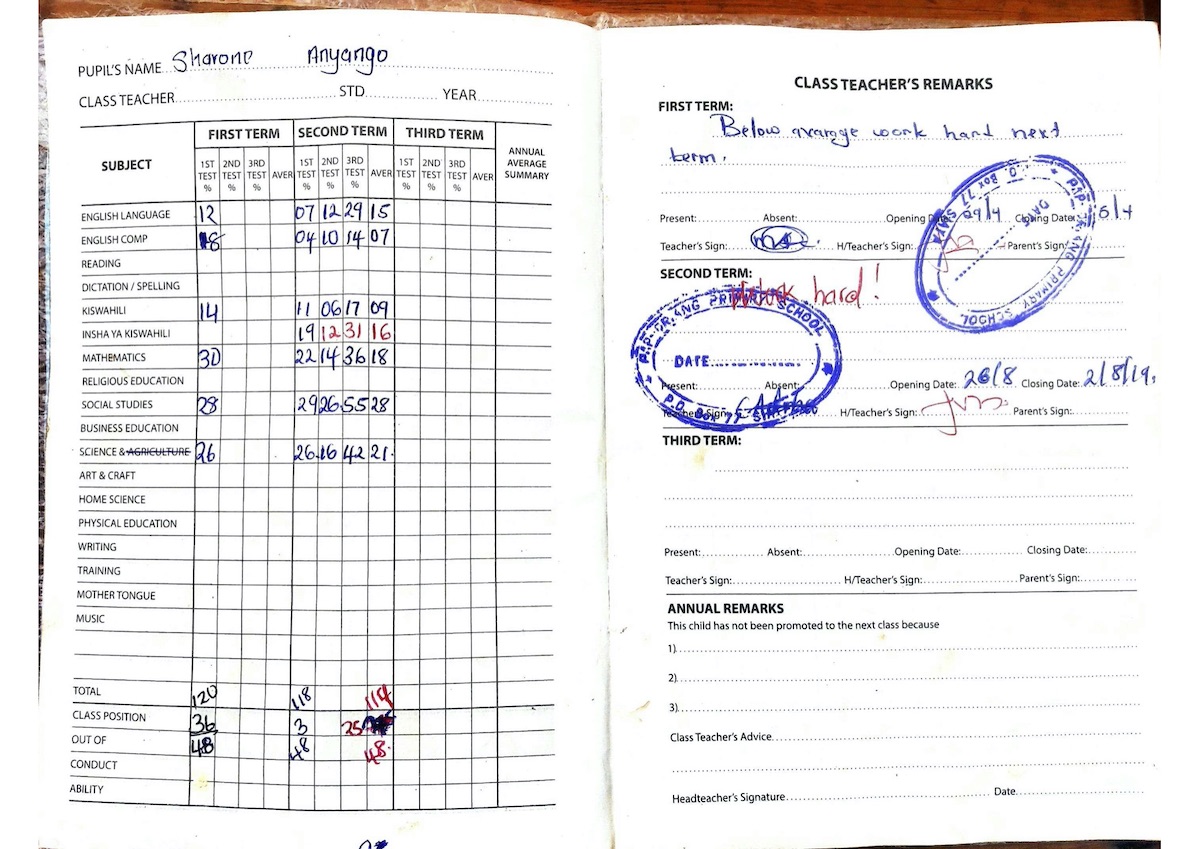 PUPIL'S NAME Sharone Anyango
CLASS TEACHER STD YEAR
SUBJECT FIRST TERM SECOND TERM THIRD TERM ANNUAL AVERAGE SUMMARY
1ST TEST % 2ND TEST % 3RD TEST % AVER 1ST TEST % 2ND TEST % 3RD TEST % AVER 1ST TEST % 2ND TEST % 3RD TEST % AVER
ENGLISH LANGUAGE 12 07 12 29 15
ENGLISH COMP 8 04 10 14 07
READING
DICTATION / SPELLING
KISWAHILI 14 11 06 17 09
INSHA YA KISWAHILI 19 12 31 16
MATHEMATICS 30 22 14 36 18
RELIGIOUS EDUCATION
SOCIAL STUDIES 28 29 26 55 28
BUSINESS EDUCATION
SCIENCE & AGRICULTURE 26 26 16 42 21
ART & CRAFT
HOME SCIENCE
PHYSICAL EDUCATION
WRITING
TRAINING
MOTHER TONGUE
MUSIC
TOTAL 120 118 114
CLASS POSITION 36 3 25
OUT OF 48 48 48
CONDUCT
ABILITY
CLASS TEACHER'S REMARKS
FIRST TERM:
Below avarage work hard next
term.
Present: Absent: Opening Date: 29/4 Closing Date: 5/4
Teacher's Sign: H/Teacher's Sign: Parent's Sign:
P.A.P. ORIANG PRIMARY SCHOOL
P.O. Box 77 SIAYA
DATE
SECOND TERM:
Work hard!
P.A.P. ORIANG PRIMARY SCHOOL
DATE
P.O. Box 77
Present: Absent: Opening Date: 26/8 Closing Date: 2/8/19.
Teacher's Sign: H/Teacher's Sign: Parent's Sign:
THIRD TERM:
Present: Absent: Opening Date: Closing Date:
Teacher's Sign: H/Teacher's Sign: Parent's Sign:
ANNUAL REMARKS
This child has not been promoted to the next class because
1)
2)
3)
Class Teacher's Advice
Headteacher's Signature Date